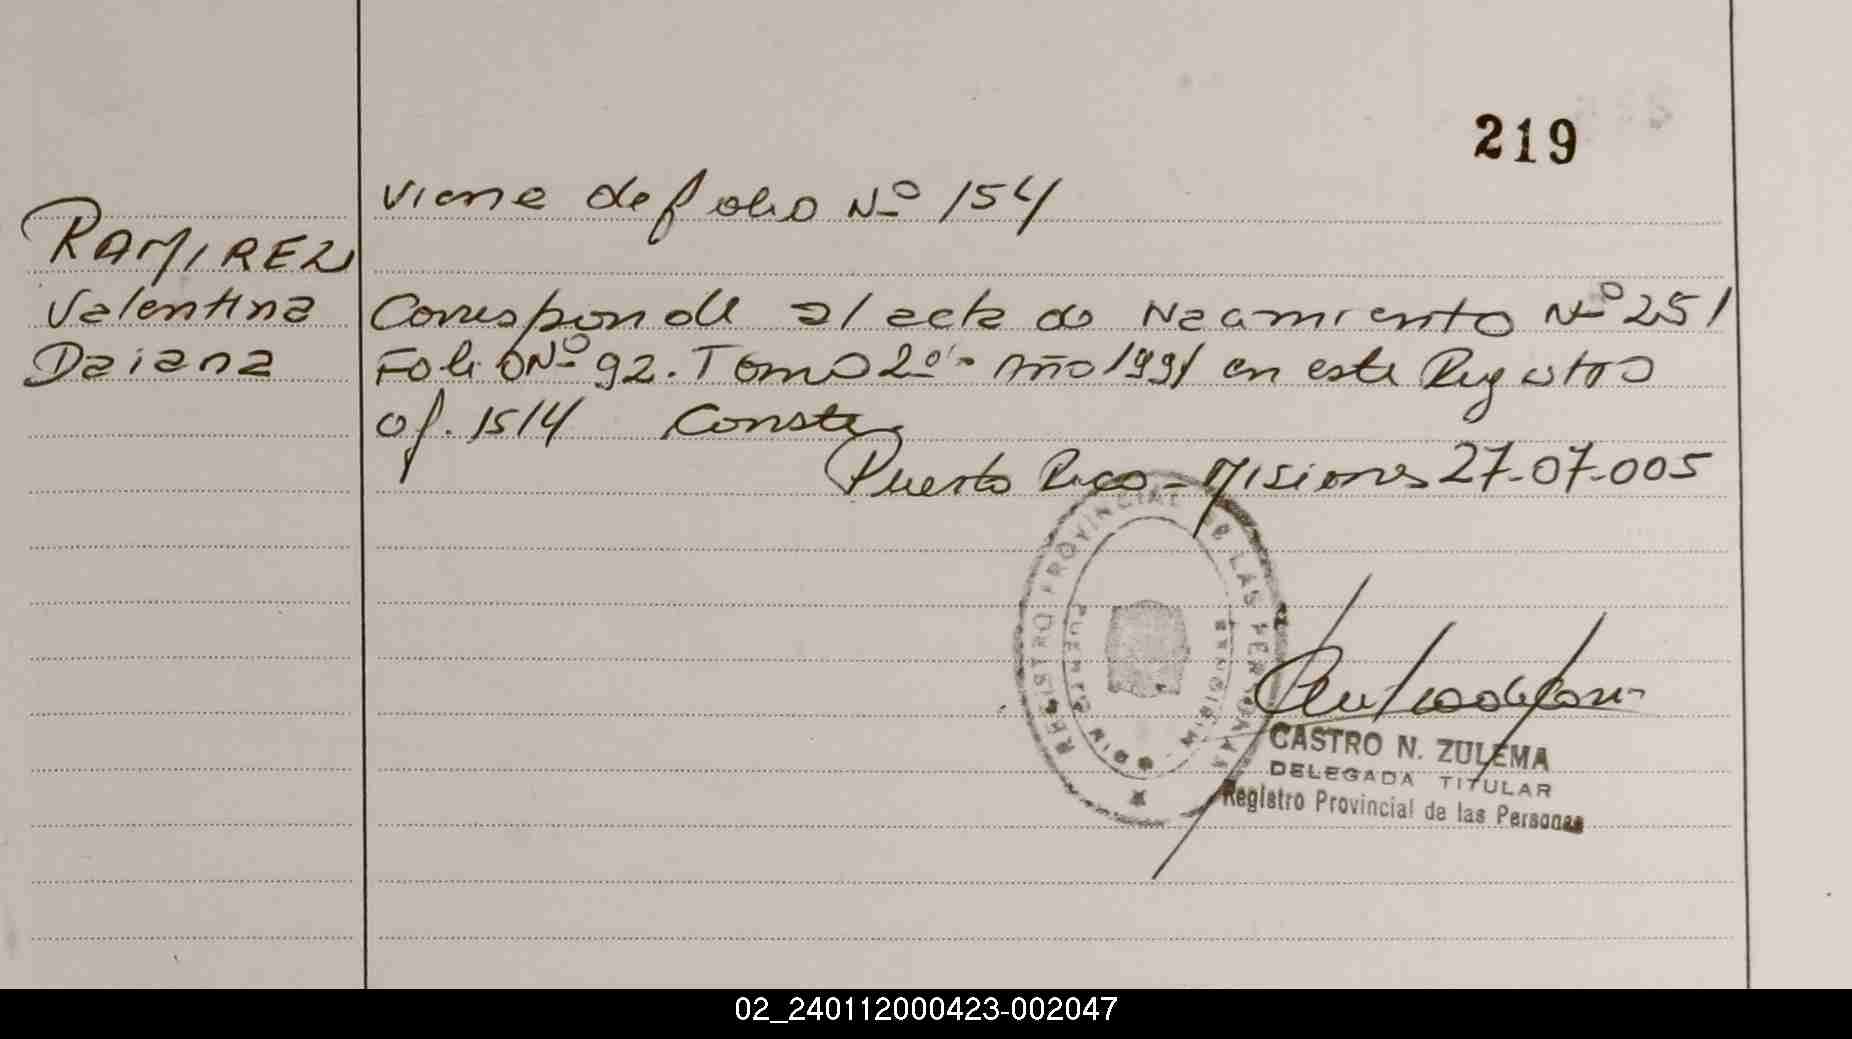 219
viene de folio Nº 154
RAMIREZ
Valentina
Daiana
Corresponde al acta de Nacimiento Nº 251
Folio Nº 92. Tomo 2º- Año 1991 en este Registro
of. 1514 Conste.
Puerto Rico - Misiones 27-07-005
REGISTRO PROVINCIAL DE LAS PERSONAS
PUERTO RICO
MISIONES
CASTRO N. ZULEMA
DELEGADA TITULAR
Registro Provincial de las Personas
02_240112000423-002047